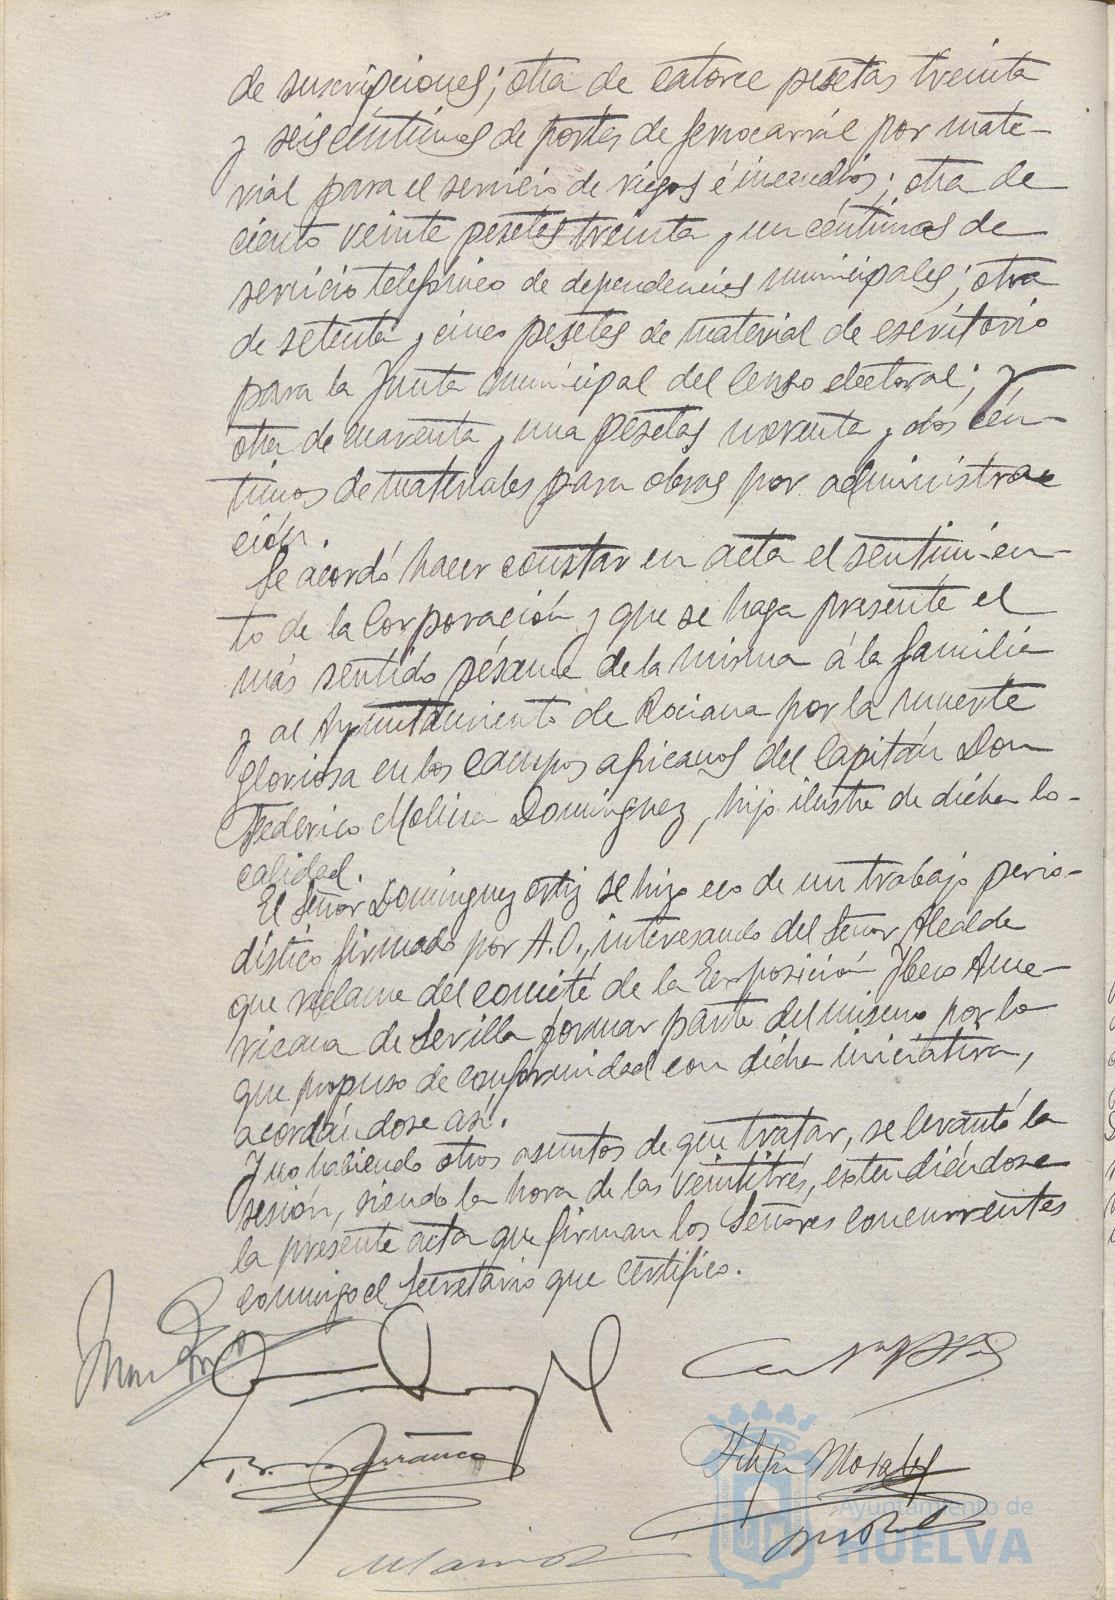 de suscripciones; otra de catorce pesetas treinta
y seis céntimos de portes de ferrocarril por mate-
rial para el servicio de riegos é incendios; otra de
ciento veinte pesetas treinta y un céntimos de
servicio telefónico de dependencias municipales; otra
de setenta y cinco pesetas de material de escritorio
para la Junta municipal del Censo electoral; y
otra de cuarenta y una pesetas noventa y dos cén-
timos de materiales para obras por administra
ción.
Se acordó hacer constar en acta el sentimien-
to de la Corporación y que se haga presente el
más sentido pésame de la misma á la familia
y al Ayuntamiento de Rociana por la muerte
gloriosa en los campos africanos del Capitán Don
Federico Molina Dominguez, hijo ilustre de dicha lo-
calidad.
El Señor Dominguez Ortiz se hizo eco de un trabajo perio-
dístico firmado por A.O., interesando del Señor Alcalde
que reclame del comité de la Exposición Ibero Ame-
ricana de Sevilla formar parte del mismo por lo
que propuso de conformidad con dicha iniciativa,
acordándose así.
Y no habiendo otros asuntos de que tratar, se levantó la
sesión, siendo la hora de las veintitrés, extendiéndose
la presente acta que firman los Señores concurrentes
conmigo el Secretario que certifico.
Garranco
Felipe Morales
Ayuntamiento de
HUELVA